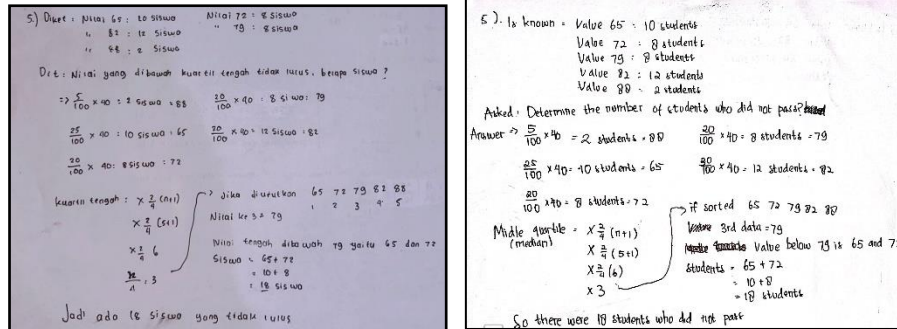 5.) Diket : Nilai 65 : 10 siswa Nilai 72 : 8 siswa
" 82 : 12 siswa " 79 : 8 siswa
" 88 : 2 siswa
Dit : Nilai yang dibawah kuartil tengah tidak lulus, berapa siswa ?
=> 5/100 x 40 : 2 siswa : 88 20/100 x 40 : 8 siswa : 79
25/100 x 40 : 10 siswa : 65 x 40 : 12 siswa : 82
20/100 x 40 : 8 siswa : 72
kuartil tengah : x 2/4 (n+1)
x 2/4 (5+1)
x 2/4 6
: 3
Jika diurutkan 65 72 79 82 88
1 2 3 4 5
Nilai ke 3 = 79
Nilai tengah dibawah 79 yaitu 65 dan 72
Siswa = 65 + 72
= 10 + 8
= 18 siswa
Jadi ada 18 siswa yang tidak lulus
5). Is known = Value 65 : 10 students
Value 72 : 8 students
Value 79 : 8 students
Value 82 : 12 students
Value 88 : 2 students
Asked : Determine the number of students who did not pass?
Answer => 5/100 x 40 = 2 students = 88 20/100 x 40 = 8 students = 79
25/100 x 40 = 10 students = 65 30/100 x 40 = 12 students = 82
20/100 x 40 = 8 students = 72
Midle quartile = x 2/4 (n+1)
(median) x 2/4 (5+1)
x 2/4 (6)
x 3
if sorted 65 72 79 82 88
3rd data = 79
Value below 79 is 65 and 7
students = 65 + 72
= 10 + 8
= 18 students
So there were 18 students who did not pass